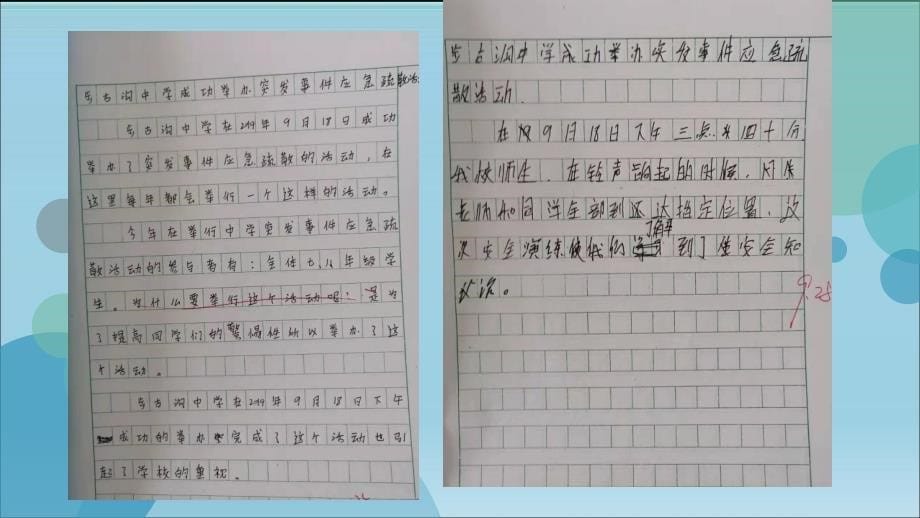 东古沟中学成功举办突发事件应急疏散活动
东古沟中学在2019年9月18日成功
举办了突发事件应急疏散的活动，在
这里每年都会举行一个这样的活动。
今年在举行中学突发事件应急疏
散活动的参与者有：全体七、八年级学
生。为什么要举行这个活动呢：是为
了提高同学们的警惕性所以举办了这
个活动。
东古沟中学在2019年9月18日下午
成功的举办完成了这个活动也引
起了学校的重视。
东古沟中学成功举办突发事件应急疏
散活动.
在9月18日下午三点四十分
我校师生，在铃声响起的时候，
老师和同学全部到达指定位置，这
次安全演练使我们了解到了生安全知
识。
9.28